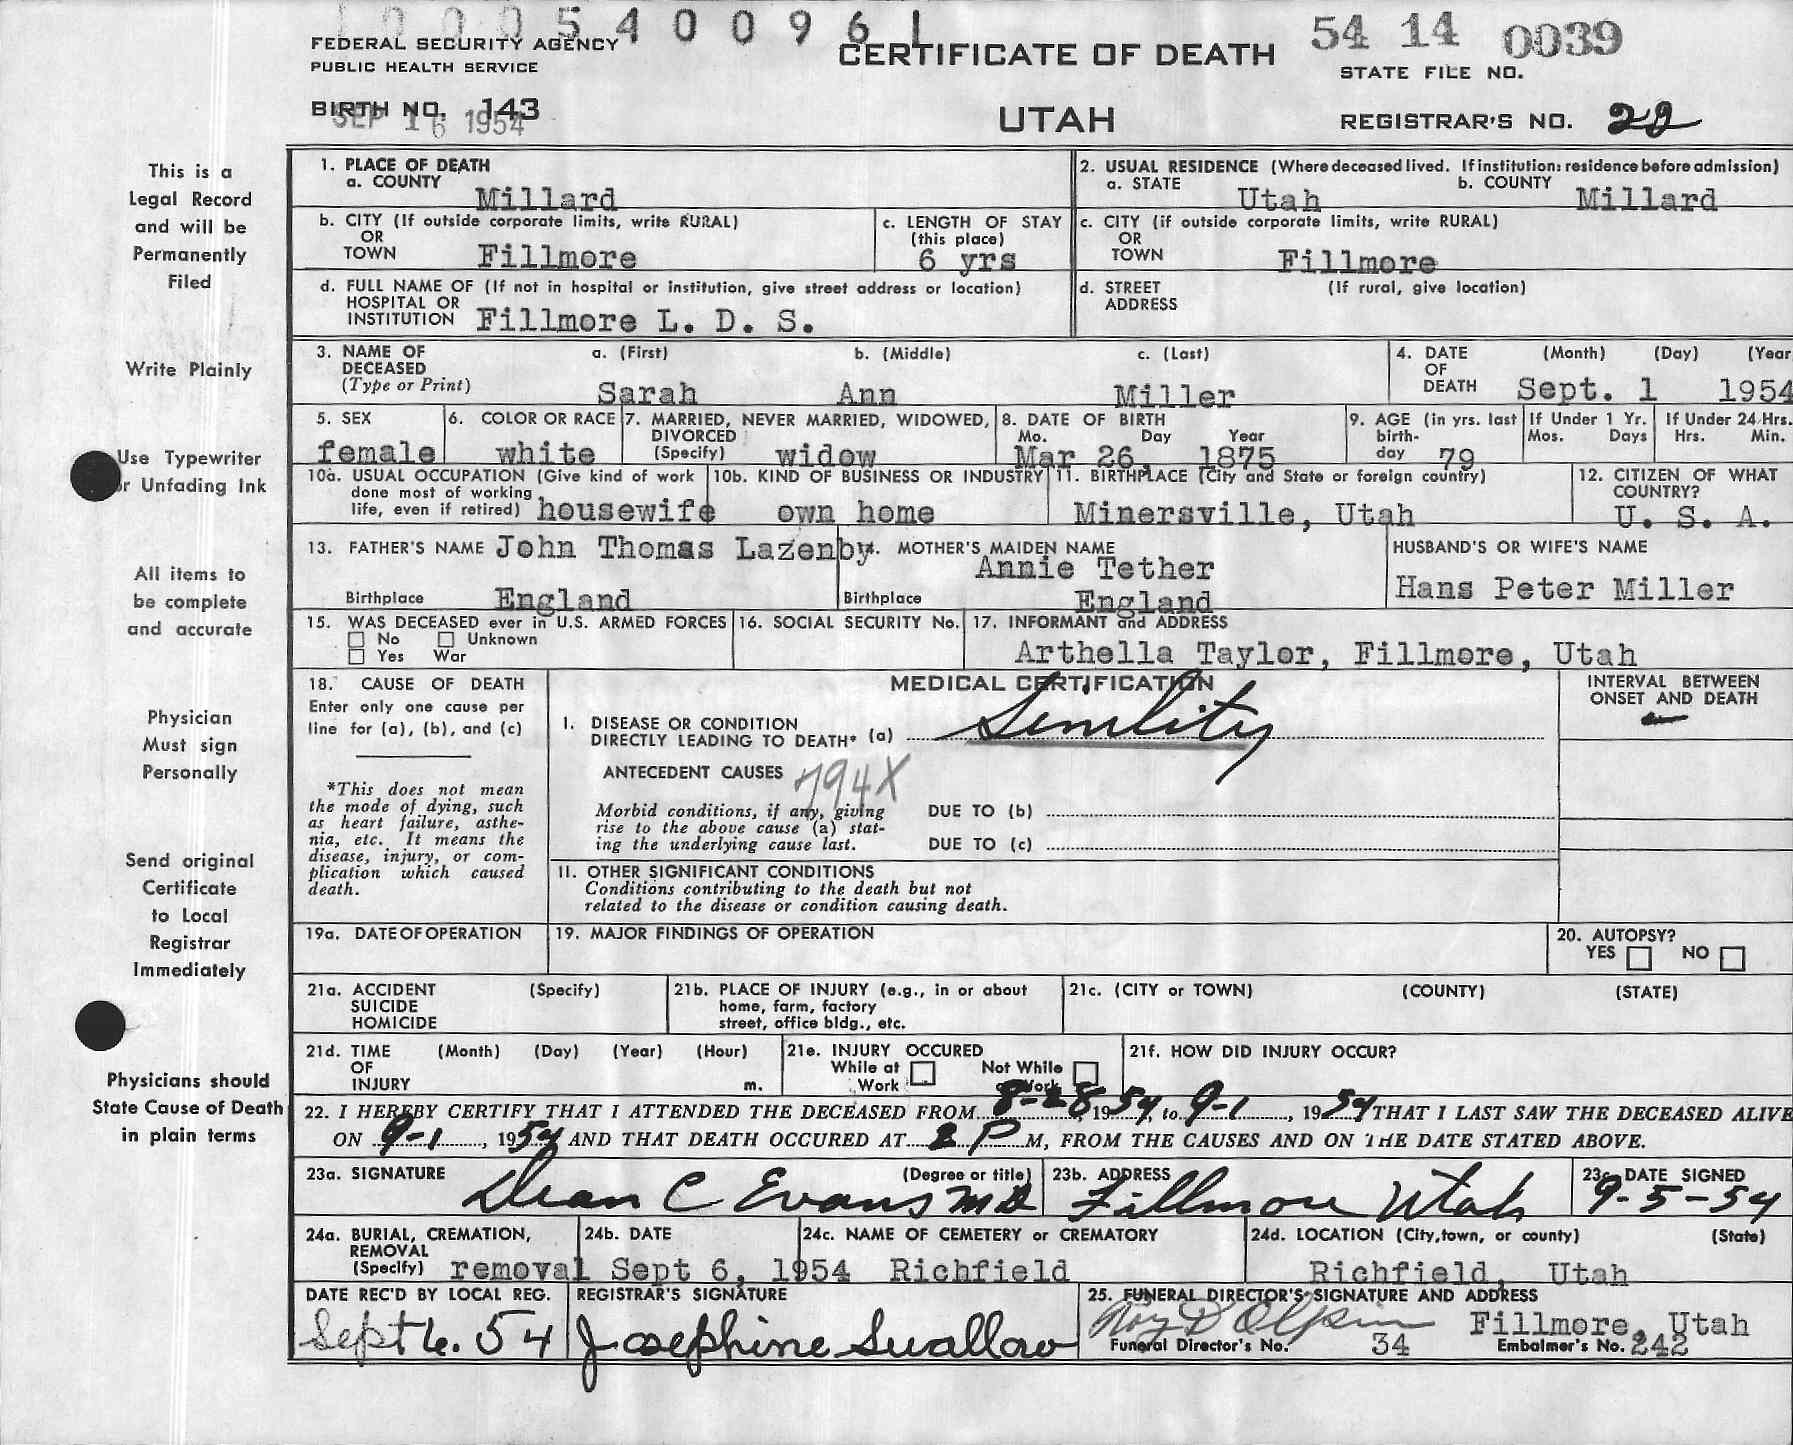 1 0 0 0 5 4 0 0 9 6 1
FEDERAL SECURITY AGENCY
PUBLIC HEALTH SERVICE
CERTIFICATE OF DEATH
54 14 0039
STATE FILE NO.
BIRTH NO. 143
SEP 16 1954
UTAH
REGISTRAR'S NO.
This is a
Legal Record
and will be
Permanently
Filed
Write Plainly
Use Typewriter
or Unfading Ink
All items to
be complete
and accurate
Physician
Must sign
Personally
Send original
Certificate
to Local
Registrar
Immediately
Physicians should
State Cause of Death
in plain terms
1. PLACE OF DEATH
a. COUNTY Millard
2. USUAL RESIDENCE (Where deceased lived. If institution: residence before admission)
a. STATE Utah b. COUNTY Millard
b. CITY (If outside corporate limits, write RURAL)
OR
TOWN Fillmore
c. LENGTH OF STAY
(this place)
6 yrs
c. CITY (if outside corporate limits, write RURAL)
OR
TOWN Fillmore
d. FULL NAME OF (If not in hospital or institution, give street address or location)
HOSPITAL OR
INSTITUTION Fillmore L. D. S.
d. STREET (If rural, give location)
ADDRESS
3. NAME OF DECEASED
(Type or Print)
a. (First) b. (Middle) c. (Last)
Sarah Ann Miller
4. DATE OF DEATH
(Month) (Day) (Year
Sept. 1 1954
5. SEX
female
6. COLOR OR RACE
white
7. MARRIED, NEVER MARRIED, WIDOWED,
DIVORCED
(Specify) widow
8. DATE OF BIRTH
Mo. Day Year
Mar 26, 1875
9. AGE (in yrs. last
birth-
day 79
If Under 1 Yr.
Mos. Days
If Under 24 Hrs.
Hrs. Min.
10a. USUAL OCCUPATION (Give kind of work
done most of working
life, even if retired) housewife
10b. KIND OF BUSINESS OR INDUSTRY
own home
11. BIRTHPLACE (City and State or foreign country)
Minersville, Utah
12. CITIZEN OF WHAT
COUNTRY?
U. S. A.
13. FATHER'S NAME John Thomas Lazenby
Birthplace England
MOTHER'S MAIDEN NAME
Annie Tether
Birthplace England
HUSBAND'S OR WIFE'S NAME
Hans Peter Miller
15. WAS DECEASED ever in U.S. ARMED FORCES
No Unknown
Yes War
16. SOCIAL SECURITY No.
17. INFORMANT and ADDRESS
Arthella Taylor, Fillmore, Utah
18. CAUSE OF DEATH
Enter only one cause per
line for (a), (b), and (c)
*This does not mean
the mode of dying, such
as heart failure, asthe-
nia, etc. It means the
disease, injury, or com-
plication which caused
death.
MEDICAL CERTIFICATION
INTERVAL BETWEEN
ONSET AND DEATH
I. DISEASE OR CONDITION
DIRECTLY LEADING TO DEATH* (a) Senility
ANTECEDENT CAUSES 794X
Morbid conditions, if any, giving
rise to the above cause (a) stat-
ing the underlying cause last.
DUE TO (b)
DUE TO (c)
11. OTHER SIGNIFICANT CONDITIONS
Conditions contributing to the death but not
related to the disease or condition causing death.
19a. DATE OF OPERATION
19. MAJOR FINDINGS OF OPERATION
20. AUTOPSY?
YES NO
21a. ACCIDENT (Specify)
SUICIDE
HOMICIDE
21b. PLACE OF INJURY (e.g., in or about
home, farm, factory
street, office bldg., etc.
21c. (CITY or TOWN) (COUNTY) (STATE)
21d. TIME (Month) (Day) (Year) (Hour)
OF
INJURY m.
21e. INJURY OCCURED
While at Work
Not While
at Work
21f. HOW DID INJURY OCCUR?
22. I HEREBY CERTIFY THAT I ATTENDED THE DECEASED FROM 8-28, 1954, to 9-1, 1954 THAT I LAST SAW THE DECEASED ALIVE
ON 9-1, 1954 AND THAT DEATH OCCURED AT 2 P M, FROM THE CAUSES AND ON THE DATE STATED ABOVE.
23a. SIGNATURE (Degree or title)
Dean C Evans MD
23b. ADDRESS
Fillmore Utah
23c. DATE SIGNED
9-5-54
24a. BURIAL, CREMATION,
REMOVAL
(Specify) removal
24b. DATE
Sept 6, 1954
24c. NAME OF CEMETERY or CREMATORY
Richfield
24d. LOCATION (City, town, or county) (State)
Richfield, Utah
DATE REC'D BY LOCAL REG.
Sept 6. 54
REGISTRAR'S SIGNATURE
Josephine Swallow
25. FUNERAL DIRECTOR'S SIGNATURE AND ADDRESS
Roy D Olpin Fillmore, Utah
Funeral Director's No. 34 Embalmer's No. 242